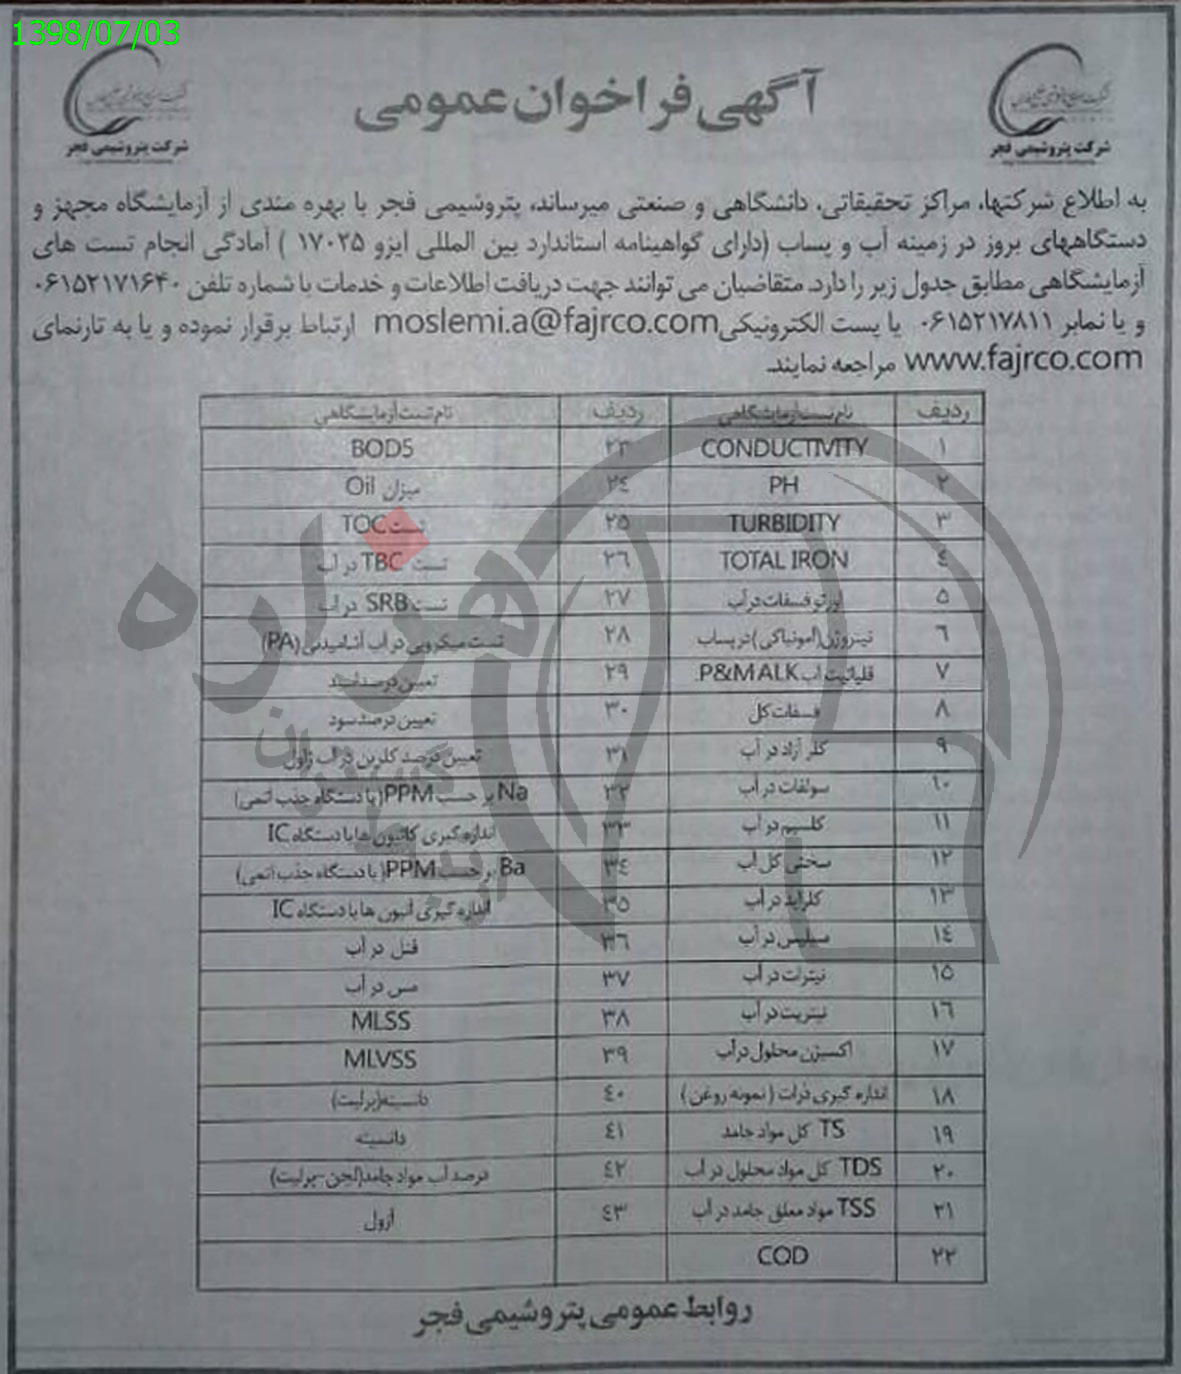 1398/07/03
آگهی فراخوان عمومی
شرکت پتروشیمی فجر
شرکت پتروشیمی فجر
به اطلاع شرکتها، مراکز تحقیقاتی، دانشگاهی و صنعتی میرساند، پتروشیمی فجر با بهره مندی از آزمایشگاه مجهز و
دستگاههای بروز در زمینه آب و پساب (دارای گواهینامه استاندارد بین المللی ایزو ۱۷۰۲۵ ) آمادگی انجام تست های
آزمایشگاهی مطابق جدول زیر را دارد. متقاضیان می توانند جهت دریافت اطلاعات و خدمات با شماره تلفن ۰۶۱۵۲۱۷۱۶۴۰
و یا نمابر ۰۶۱۵۲۱۷۸۱۱ یا پست الکترونیکی moslemi.a@fajrco.com ارتباط برقرار نموده و یا به تارنمای
www.fajrco.com مراجعه نمایند.
ردیف نام تست آزمایشگاهی ردیف نام تست آزمایشگاهی
۱ CONDUCTIVITY ۲۳ BOD5
۲ PH ۲٤ میزان Oil
۳ TURBIDITY ۲۵ تست TOC
٤ TOTAL IRON ۲٦ تست TBC در آب
۵ اورتو فسفات در آب ۲۷ تست SRB در آب
٦ نیتروژن(آمونیاکی) در پساب ۲۸ تست میکروبی در آب آشامیدنی (PA)
۷ قلیائیت آب P&M ALK ۲۹ تعیین درصد اسید
۸ فسفات کل ۳۰ تعیین درصد سود
۹ کلر آزاد در آب ۳۱ تعیین درصد کلرین در آب ژاول
۱۰ سولفات در آب ۳۲ Na بر حسب PPM(با دستگاه جذب اتمی)
۱۱ کلسیم در آب ۳۳ اندازه گیری کاتیون ها با دستگاه IC
۱۲ سختی کل آب ۳٤ Ba بر حسب PPM(با دستگاه جذب اتمی)
۱۳ کلراید در آب ۳۵ اندازه گیری آنیون ها با دستگاه IC
۱٤ سیلیس در آب ۳٦ فنل در آب
۱۵ نیترات در آب ۳۷ مس در آب
۱٦ نیتریت در آب ۳۸ MLSS
۱۷ اکسیژن محلول در آب ۳۹ MLVSS
۱۸ اندازه گیری ذرات ( نمونه روغن ) ٤۰ دانسیته(پرلیت)
۱۹ TS کل مواد جامد ٤۱ دانسیته
۲۰ TDS کل مواد محلول در آب ٤۲ درصد آب مواد جامد(لجن-پرلیت)
۲۱ TSS مواد معلق جامد در آب ٤۳ ازول
۲۲ COD
روابط عمومی پتروشیمی فجر
هزاره